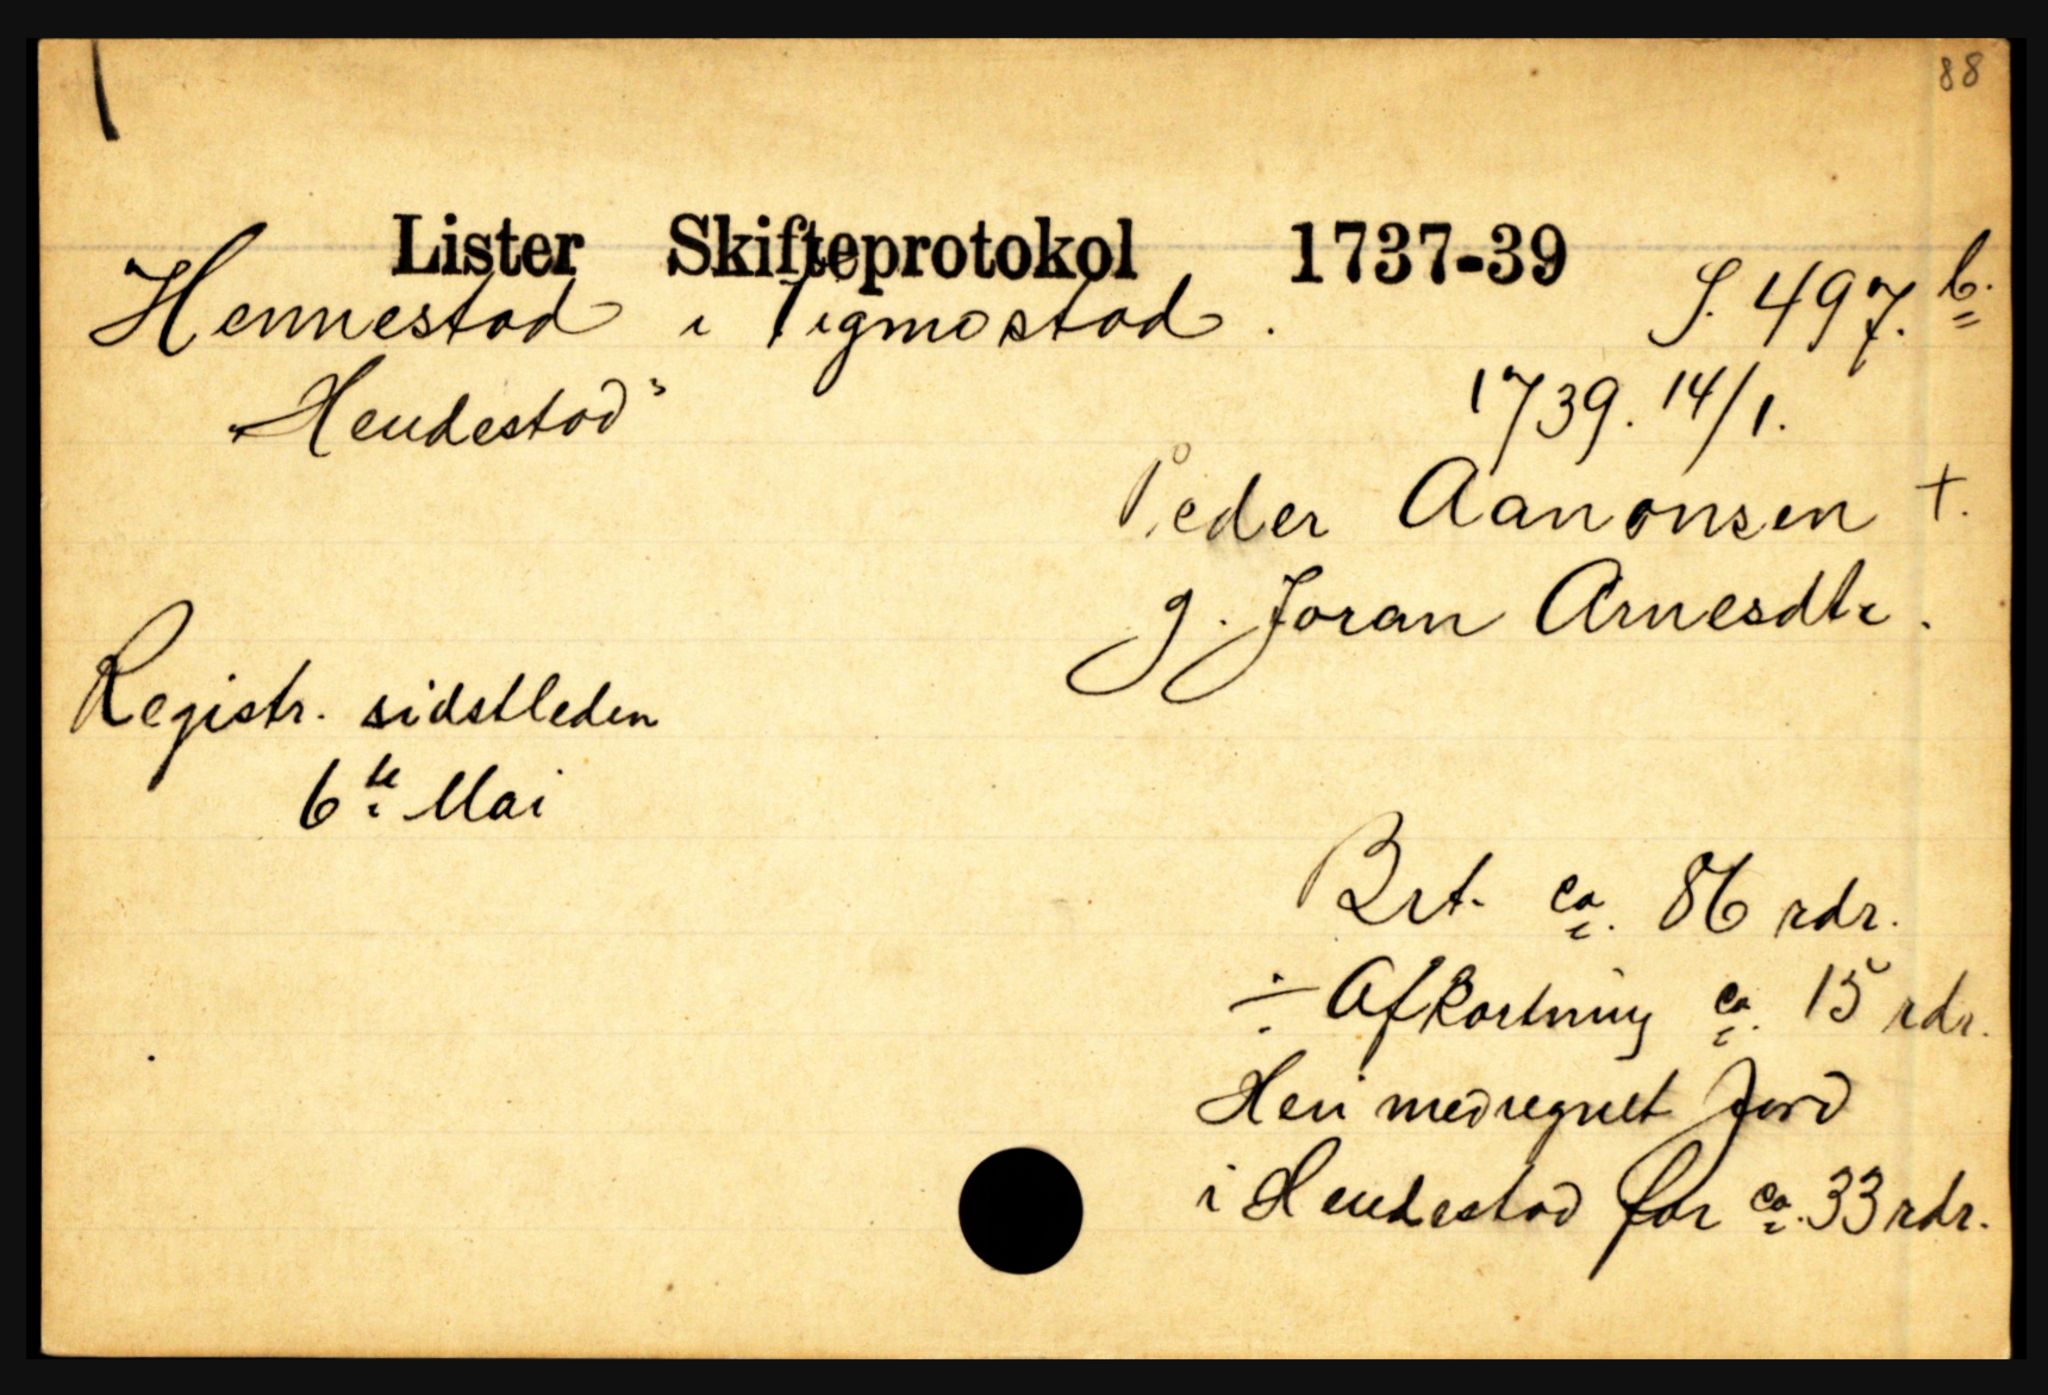 88
Lister Skifteprotokol 1737-39
Hennestad i Tigmostad. S. 497. b.
"Hendestad"
1739. 14/1.
Peder Aanonsen +.
g. Joran Arnesdtr.
Registr. sidstleden
6te Mai
Brt. ca. 86 rdr.
÷ Afkortning ca. 15 rdr.
Heri medregnet Jord
i Hendestad for ca. 33 rdr.